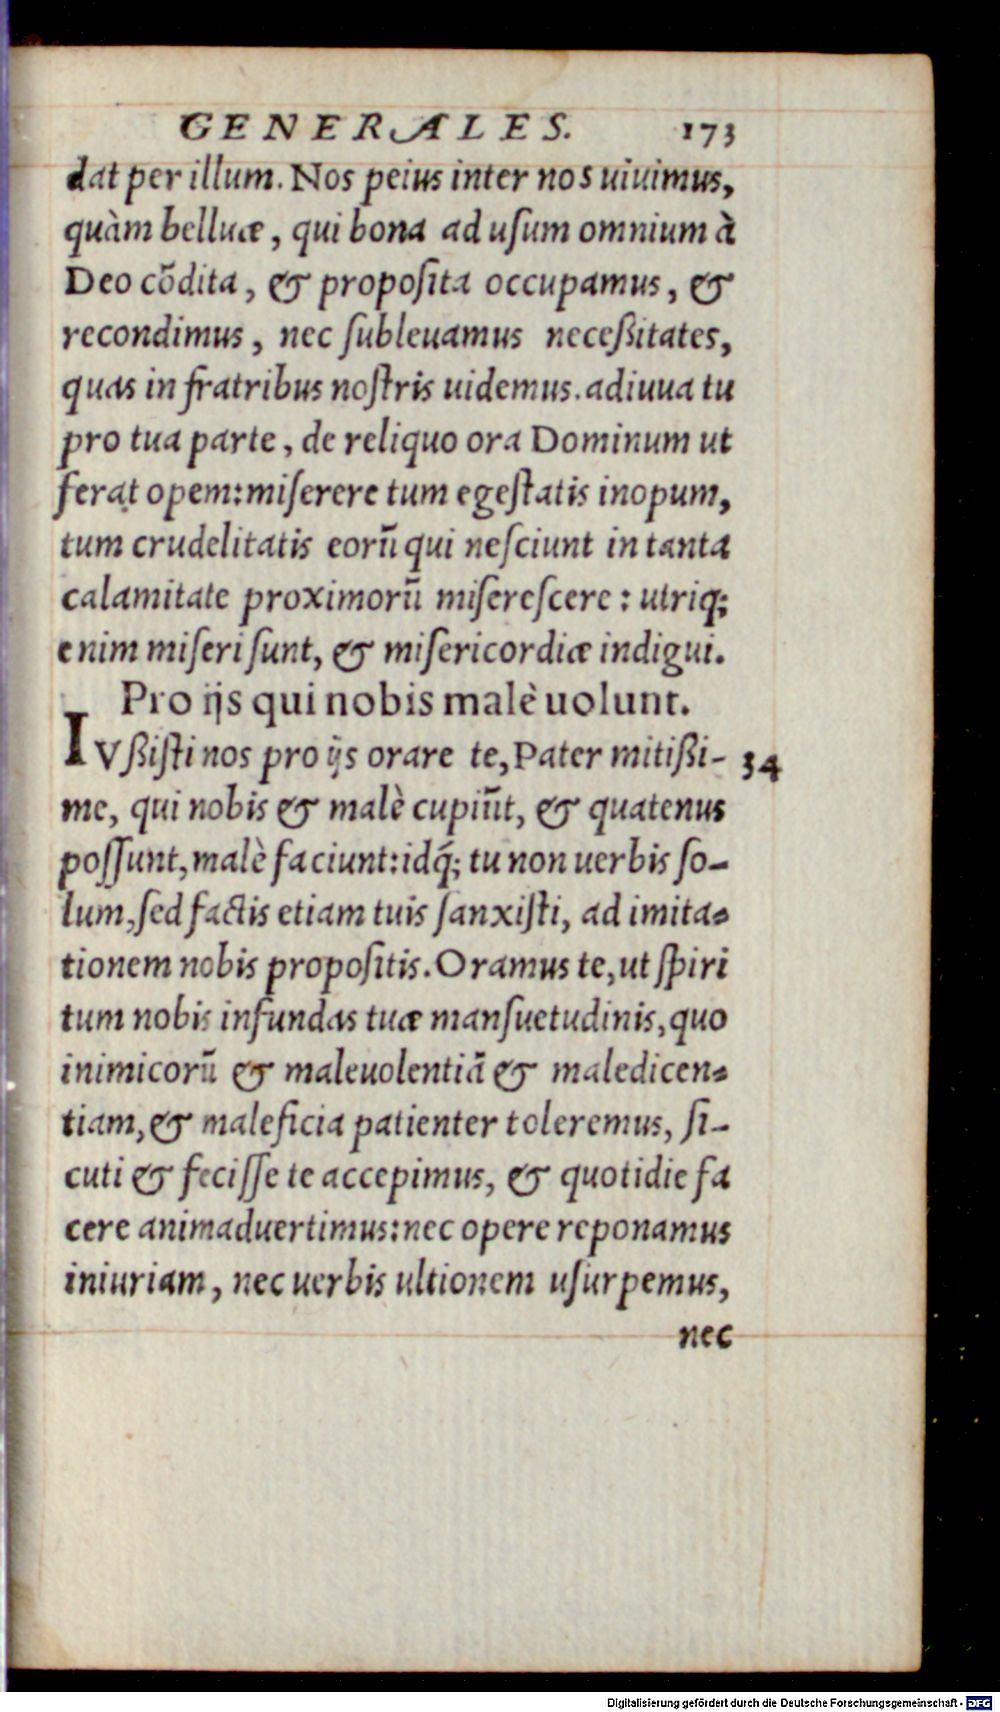 GENERALES. 173
dat per illum. Nos peius inter nos uiuimus,
quàm belluæ, qui bona ad uſum omnium à
Deo cōdita, & propoſita occupamus, &
recondimus, nec ſubleuamus neceßitates,
quas in fratribus noſtris uidemus. adiuua tu
pro tua parte, de reliquo ora Dominum ut
ferat opem: miſerere tum egeſtatis inopum,
tum crudelitatis eorū qui neſciunt in tanta
calamitate proximorū miſereſcere: utriq;
enim miſeri ſunt, & miſericordiæ indigui.
Pro ijs qui nobis malè uolunt.
IVßiſti nos pro ijs orare te, Pater mitißi- 34
me, qui nobis & malè cupiūt, & quatenus
poſſunt, malè faciunt: idq́; tu non uerbis ſo-
lum, ſed factis etiam tuis ſanxiſti, ad imita-
tionem nobis propoſitis. Oramus te, ut ſpiri
tum nobis infundas tuæ manſuetudinis, quo
inimicorū & maleuolentiā & maledicen-
tiam, & maleficia patienter toleremus, ſi-
cuti & feciſſe te accepimus, & quotidie fa
cere animaduertimus: nec opere reponamus
iniuriam, nec uerbis ultionem uſurpemus,
nec
Digitalisierung gefördert durch die Deutsche Forschungsgemeinschaft - DFG